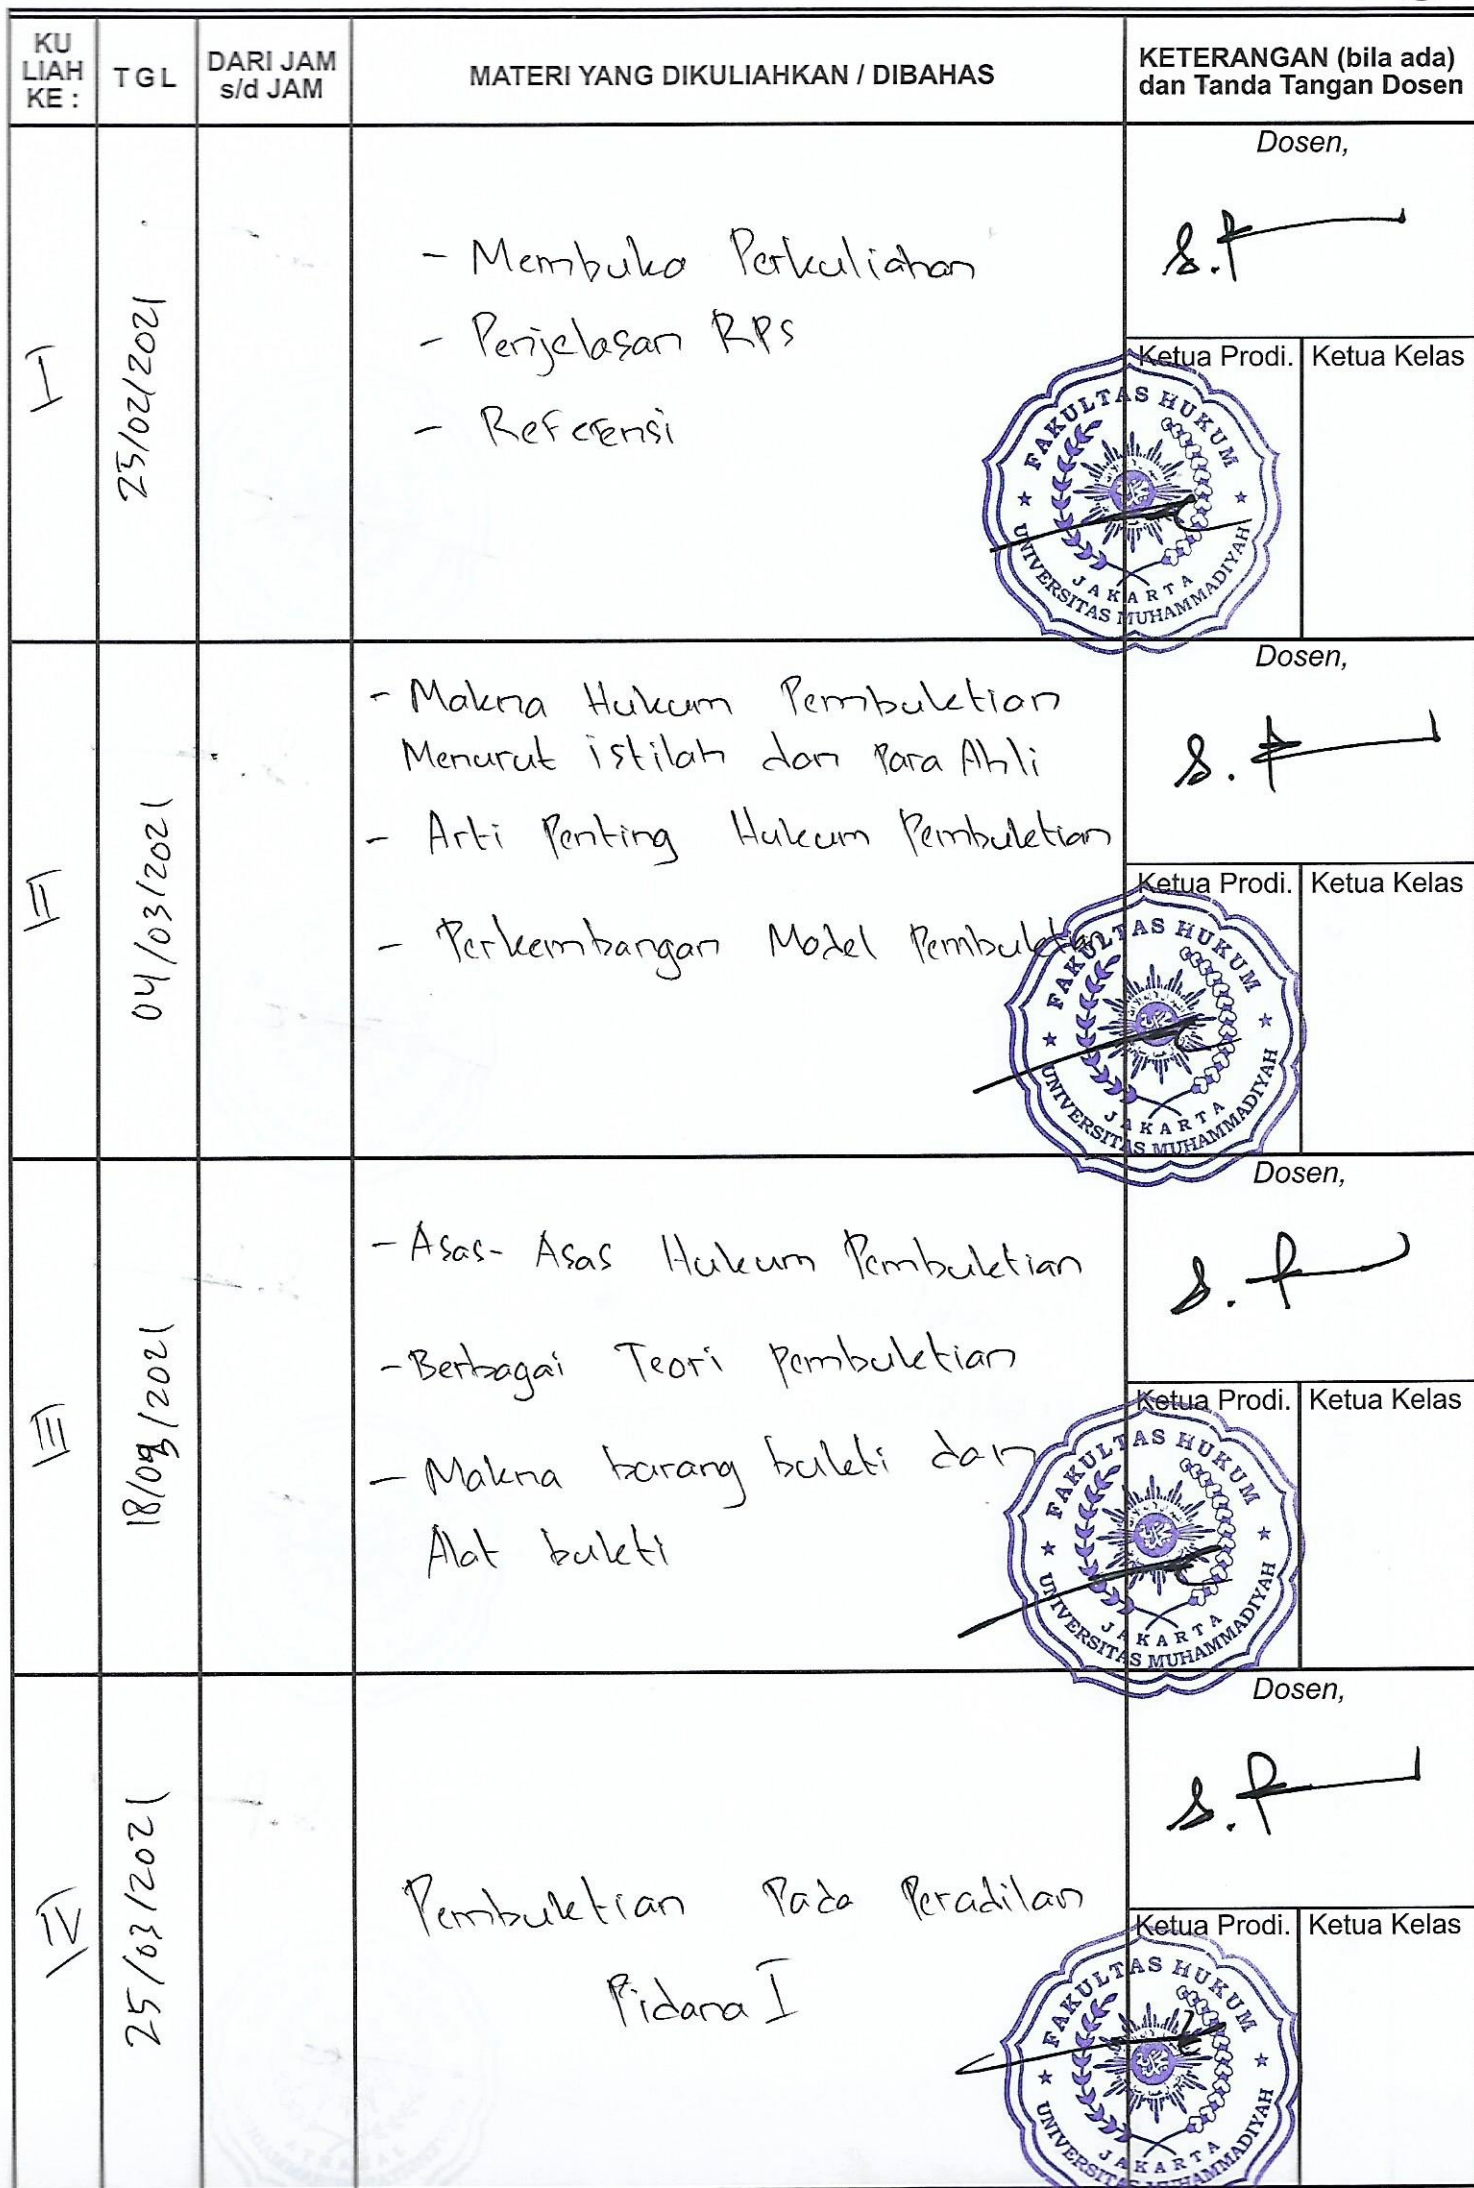 KU
LIAH
KE :
TGL
DARI JAM
s/d JAM
MATERI YANG DIKULIAHKAN / DIBAHAS
KETERANGAN (bila ada)
dan Tanda Tangan Dosen
I
25/02/2021
- Membuka Perkuliahan
- Penjelasan RPS
- Referensi
Dosen,
Ketua Prodi.
Ketua Kelas
FAKULTAS HUKUM
JAKARTA
UNIVERSITAS MUHAMMADIYAH
II
04/03/2021
- Makna Hukum Pembuktian
Menurut istilah dan Para Ahli
- Arti Penting Hukum Pembuktian
- Perkembangan Model Pembuktian
Dosen,
Ketua Prodi.
Ketua Kelas
FAKULTAS HUKUM
JAKARTA
UNIVERSITAS MUHAMMADIYAH
III
- Asas-Asas Hukum Pembuktian
- Berbagai Teori Pembuktian
- Makna barang bukti dan
Alat bukti
Dosen,
Ketua Prodi.
Ketua Kelas
FAKULTAS HUKUM
JAKARTA
UNIVERSITAS MUHAMMADIYAH
IV
25/03/2021
Pembuktian Pada Peradilan
Pidana I
Dosen,
Ketua Prodi.
Ketua Kelas
FAKULTAS HUKUM
JAKARTA
UNIVERSITAS MUHAMMADIYAH